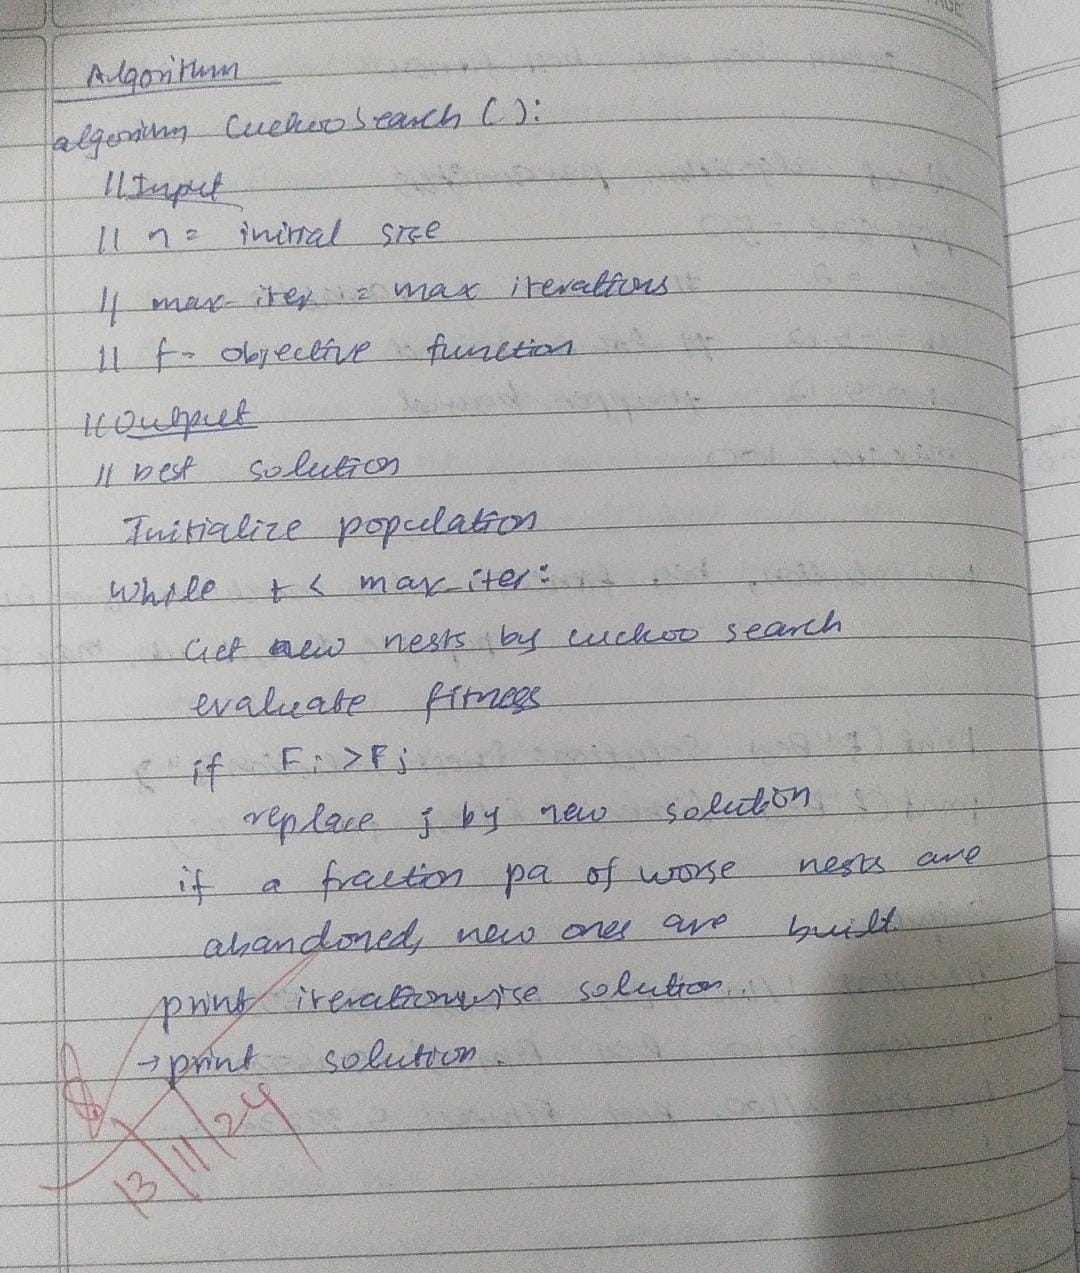 Algorithm
algorithm Cuckoo Search ( ):
// Input
// n = initial size
// max-iter = max iterations
// f = objective function
// Output
// best solution
Initialize population
While t < max-iter:
Get new nests by cuckoo search
evaluate fitness
if Fi > Fj
replace j by new solution
if a fraction pa of worse nests are
abandoned, new ones are built.
print iterationwise solution.
→ print solution.
13/11/24